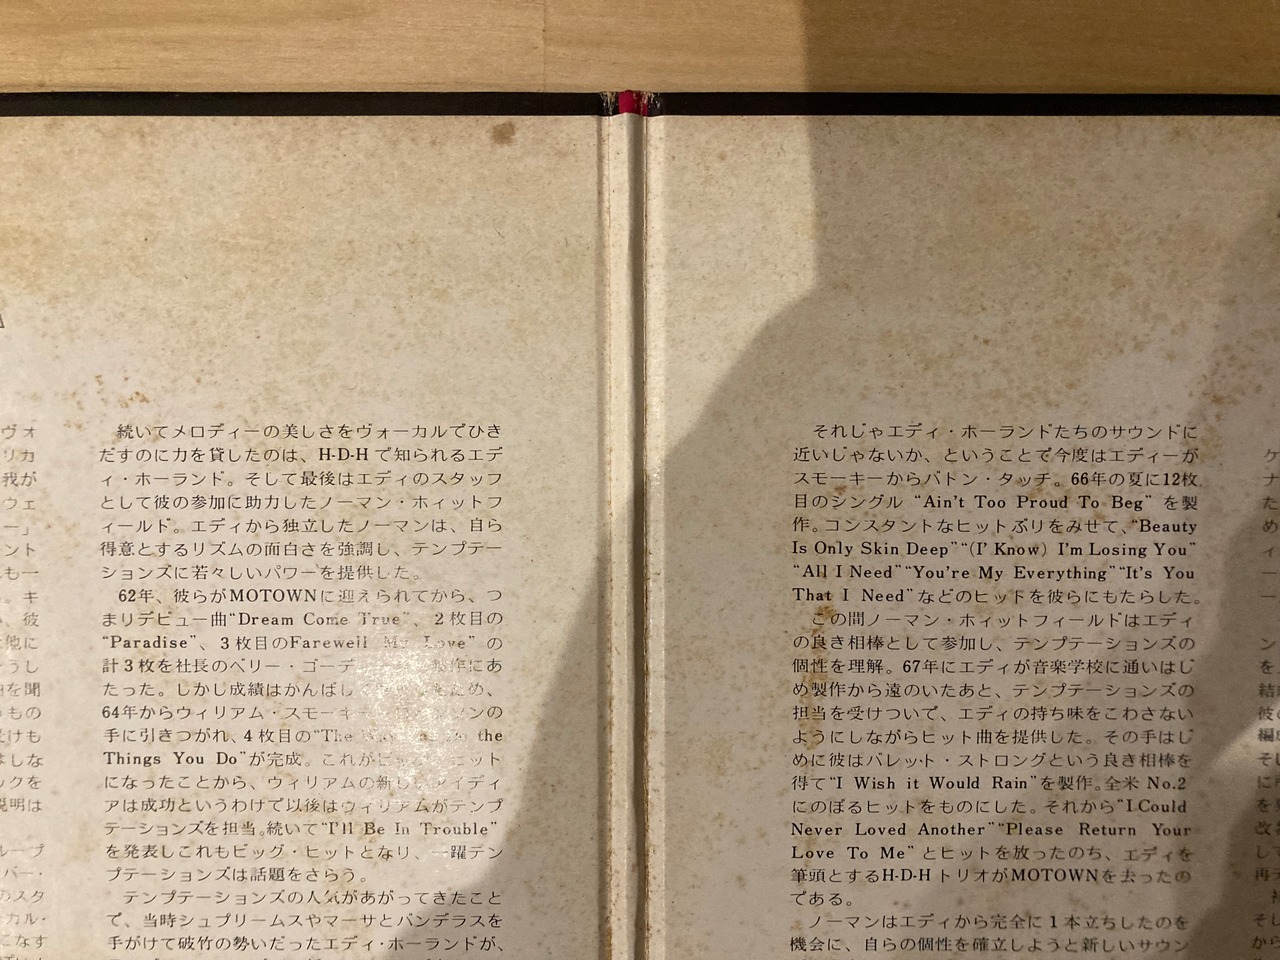 ヴォ
リカ
我が
ウェ
ー」
ント
も一
。キ
、彼
他に
うし
を聞
もの
けも
しな
ックを
説明は
ループ
バー・
のスタ
ーカル・
になす
続いてメロディーの美しさをヴォーカルでひき
だすのに力を貸したのは、H-D-Hで知られるエデ
ィ・ホーランド。そして最後はエディのスタッフ
として彼の参加に助力したノーマン・ホィットフ
ィールド。エディから独立したノーマンは、自ら
得意とするリズムの面白さを強調し、テンプテー
ションズに若々しいパワーを提供した。
62年、彼らがMOTOWNに迎えられてから、つ
まりデビュー曲“Dream Come True”、2枚目の
“Paradise”、3枚目のFarewell My Love”の
計3枚を社長のベリー・ゴーデ 作にあ
たった。しかし成績はかんばし ため、
64年からウィリアム・スモーキー ンの
手に引きつがれ、4枚目の“The the
Things You Do”が完成。これが ヒット
になったことから、ウィリアムの新しいアイディ
アは成功というわけで以後はウィリアムがテンプ
テーションズを担当。続いて“I'll Be In Trouble”
を発表しこれもビッグ・ヒットとなり、一躍テン
プテーションズは話題をさらう。
テンプテーションズの人気があがってきたこと
で、当時シュプリームスやマーサとバンデラスを
手がけて破竹の勢いだったエディ・ホーランドが、
それじゃエディ・ホーランドたちのサウンドに
近いじゃないか、ということで今度はエディーが
スモーキーからバトン・タッチ。66年の夏に12枚
目のシングル “Ain't Too Proud To Beg” を製
作。コンスタントなヒットぶりをみせて、“Beauty
Is Only Skin Deep”“(I' Know) I'm Losing You”
“All I Need”“You're My Everything”“It's You
That I Need”などのヒットを彼らにもたらした。
この間ノーマン・ホィットフィールドはエディ
の良き相棒として参加し、テンプテーションズの
個性を理解。67年にエディが音楽学校に通いはじ
め製作から遠のいたあと、テンプテーションズの
担当を受けついで、エディの持ち味をこわさない
ようにしながらヒット曲を提供した。その手はじ
めに彼はバレット・ストロングという良き相棒を
得て“I Wish it Would Rain”を製作。全米 No.2
にのぼるヒットをものにした。それから“I Could
Never Loved Another”“Please Return Your
Love To Me”とヒットを放ったのち、エディを
筆頭とするH-D-HトリオがMOTOWNを去ったの
である。
ノーマンはエディから完全に1本立ちしたのを
機会に、自らの個性を確立しようと新しいサウン
ケ
ナ
た
め
ィ
ー
ー
ン
を
結
彼
編
そ
に
を
改
し
再
そし
から